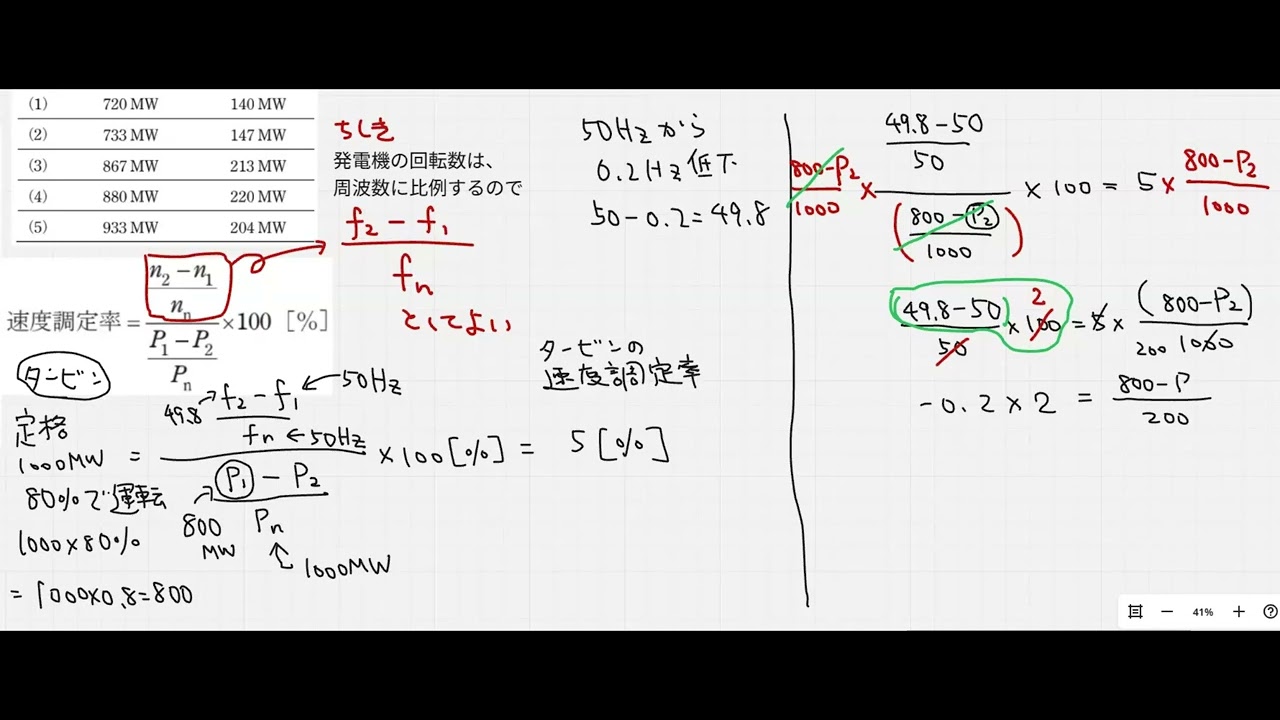 (1) 720 MW 140 MW
(2) 733 MW 147 MW
(3) 867 MW 213 MW
(4) 880 MW 220 MW
(5) 933 MW 204 MW
ちしき
発電機の回転数は、
周波数に比例するので
f₂ − f₁
fn
としてよい
速度調定率 = (n₂ − n₁)/nn / (P₁ − P₂)/Pn ×100 [%]
タービン
定格
1000MW
80%で運転
1000×80%
= 1000×0.8=800
49.8→ f₂ − f₁ ←50Hz
fn ←50Hz
= ×100[%] = 5[%]
P₁ − P₂
800 MW
Pn
1000MW
50Hzから
0.2Hz低下
50−0.2=49.8
タービンの
速度調定率
800−P₂/1000 × (49.8−50)/50 / ((800−P₂)/1000) ×100 = 5 × 800−P₂/1000
(49.8−50)/50 × 100 2 = 5 × (800−P₂)/1000 200
−0.2×2 = 800−P/200
41%